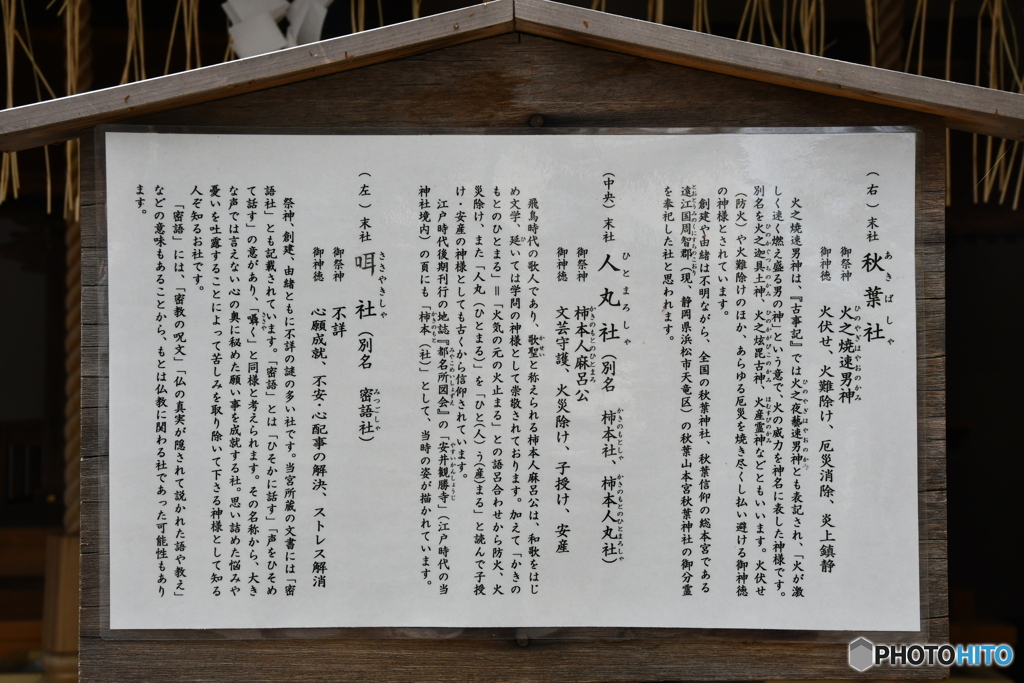 （右）末社　秋葉社
あきばしゃ
御祭神　火之焼速男神
ひのやぎはやおのかみ
御神徳　火伏せ、火難除け、厄災消除、炎上鎮静
火之焼速男神は、『古事記』では火之夜藝速男神とも表記され、「火が激
ひのやぎはやおのかみ
しく速く燃え盛る男の神」という意で、火の威力を神名に表した神様です。
別名を火之迦具土神、火之炫毘古神、火産霊神などともいいます。火伏せ
ひのかぐつちのかみ　ひのかがびこのかみ　ほむすびのかみ
（防火）や火難除けのほか、あらゆる厄災を焼き尽くし払い避ける御神徳
の神様とされています。
創建や由緒は不明ながら、全国の秋葉神社、秋葉信仰の総本宮である
遠江国周智郡（現、静岡県浜松市天竜区）の秋葉山本宮秋葉神社の御分霊
とおとうみのくにすちのこおり
を奉祀した社と思われます。
（中央）末社　人丸社（別名　柿本社、柿本人丸社）
ひとまろしゃ　かきのもとしゃ、かきのもとのひとまろしゃ
御祭神　柿本人麻呂公
かきのもとのひとまろ
御神徳　文芸守護、火災除け、子授け、安産
飛鳥時代の歌人であり、歌聖と称えられる柿本人麻呂公は、和歌をはじ
かせい
め文学、延いては学問の神様として崇敬されております。加えて「かきの
ひ
もとのひとまる」＝「火気の元の火止まる」との語呂合わせから防火、火
災除け、また「人丸（ひとまる）」を「ひと（人）う（産）まる」と読んで子授
け・安産の神様としても古くから信仰されています。
江戸時代後期刊行の地誌『都名所図会』の「安井観勝寺」（江戸時代の当
みやこめいしょずえ　やすいかんしょうじ
神社境内）の頁にも「柿本（社）」として、当時の姿が描かれています。
かきのもと
（左）末社　咡社（別名　密語社）
ささやきしゃ　みつごしゃ
御祭神　不詳
御神徳　心願成就、不安・心配事の解決、ストレス解消
祭神、創建、由緒ともに不詳の謎の多い社です。当宮所蔵の文書には「密
語社」とも記載されています。「密語」とは「ひそかに話す」「声をひそめ
て話す」の意があり、「囁く」と同様と考えられます。その名称から、大き
ささや
な声では言えない心の奥に秘めた願い事を成就する社。思い詰めた悩みや
憂いを吐露することによって苦しみを取り除いて下さる神様として知る
人ぞ知るお社です。
「密語」には、「密教の呪文」「仏の真実が隠されて説かれた語や教え」
などの意味もあることから、もとは仏教に関わる社であった可能性もあり
ます。
PHOTOHITO